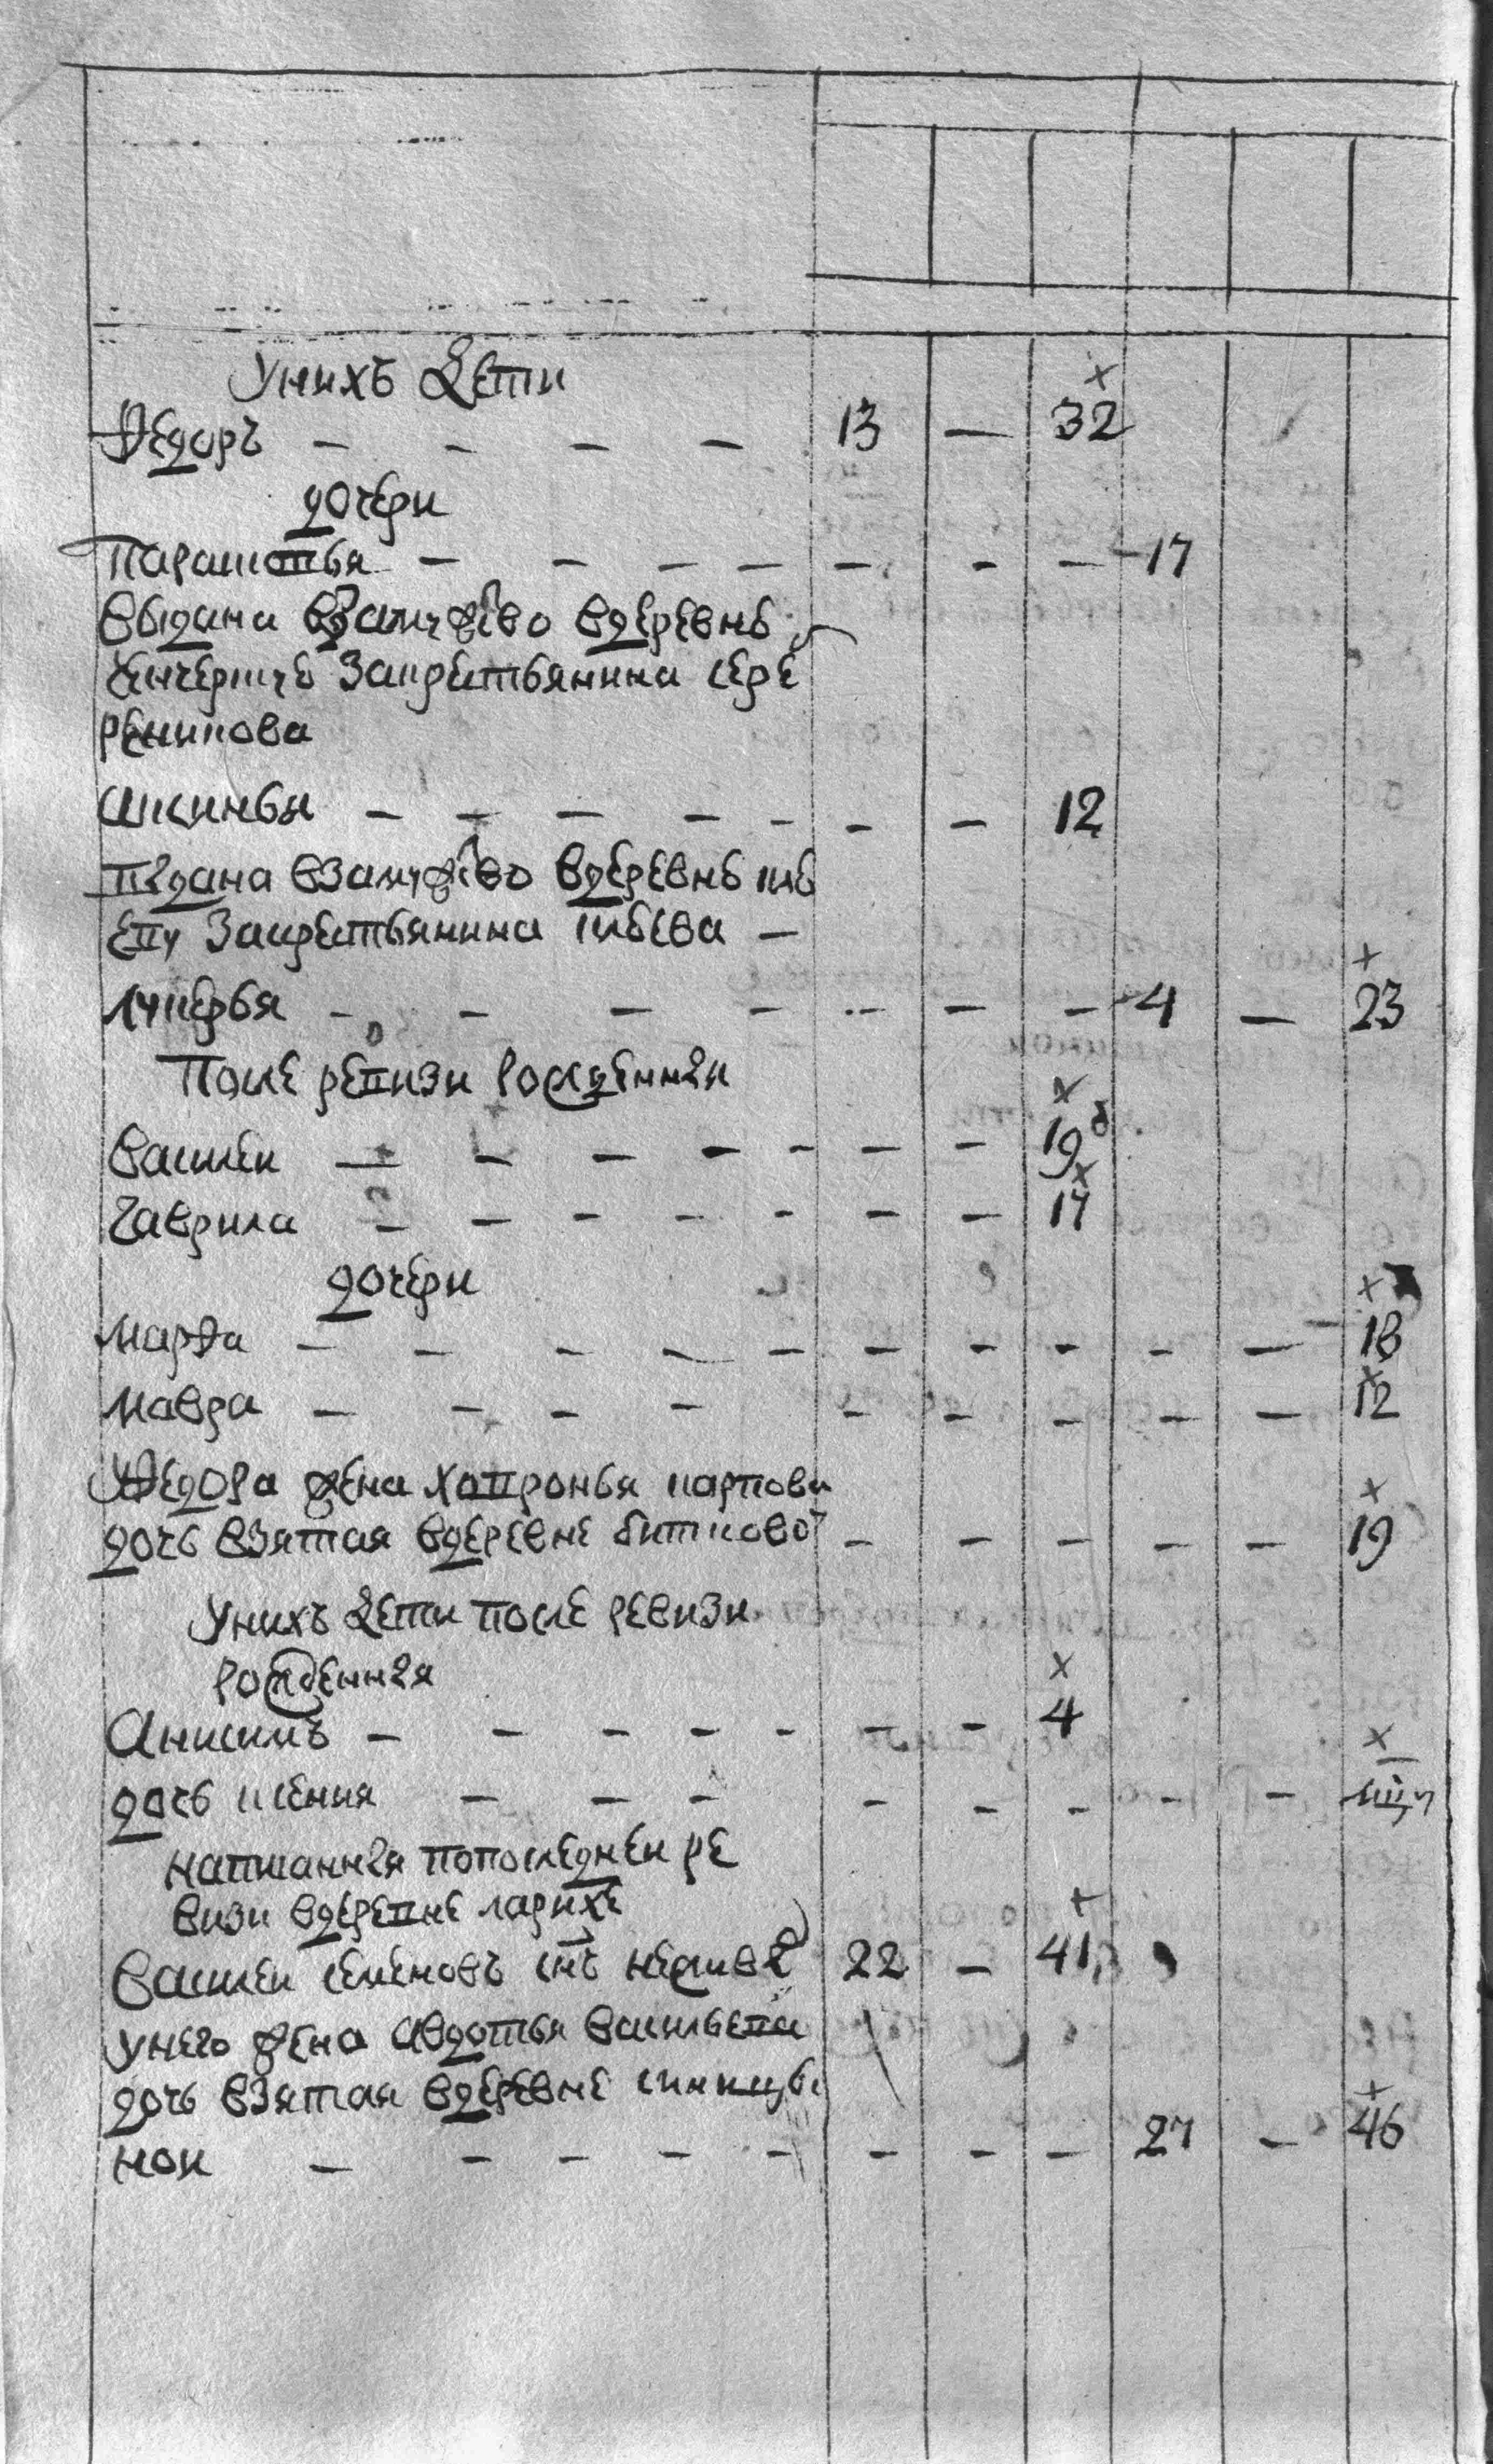 Унихъ дети
Федоръ — — — — 13 — 32
дочери
Парасковья — — — — — — — 17
выдана взамужство вдеревню
закрестьянина сере
реникова
Аксинья — — — — — — — 12
выдана взамужство вдеревню
закрестьянина
Лукерья — — — — — — — 4 — 23
После ревизи рожденныя
Василеи — — — — — — — 19
Гаврила — — — — — — — 17
дочери
Марфа — — — — — — — — — — 18
Мавра — — — — — — — — — 12
Уфедора жена Ховронья карпова
дочь взятая вдеревне битковои — — — — — 19
Унихъ дети после ревизи
рожденныя
Анисимъ — — — — — — — 4
дочь ксения — — — — — — — —
написанныя попоследнеи ре
визи вдеревне ларихе
Василеи семеновъ снъ 22 — 41
унего жена Авдотья васильева
дочь взятая вдеревне синицы
нои — — — — — — — — 27 — 46